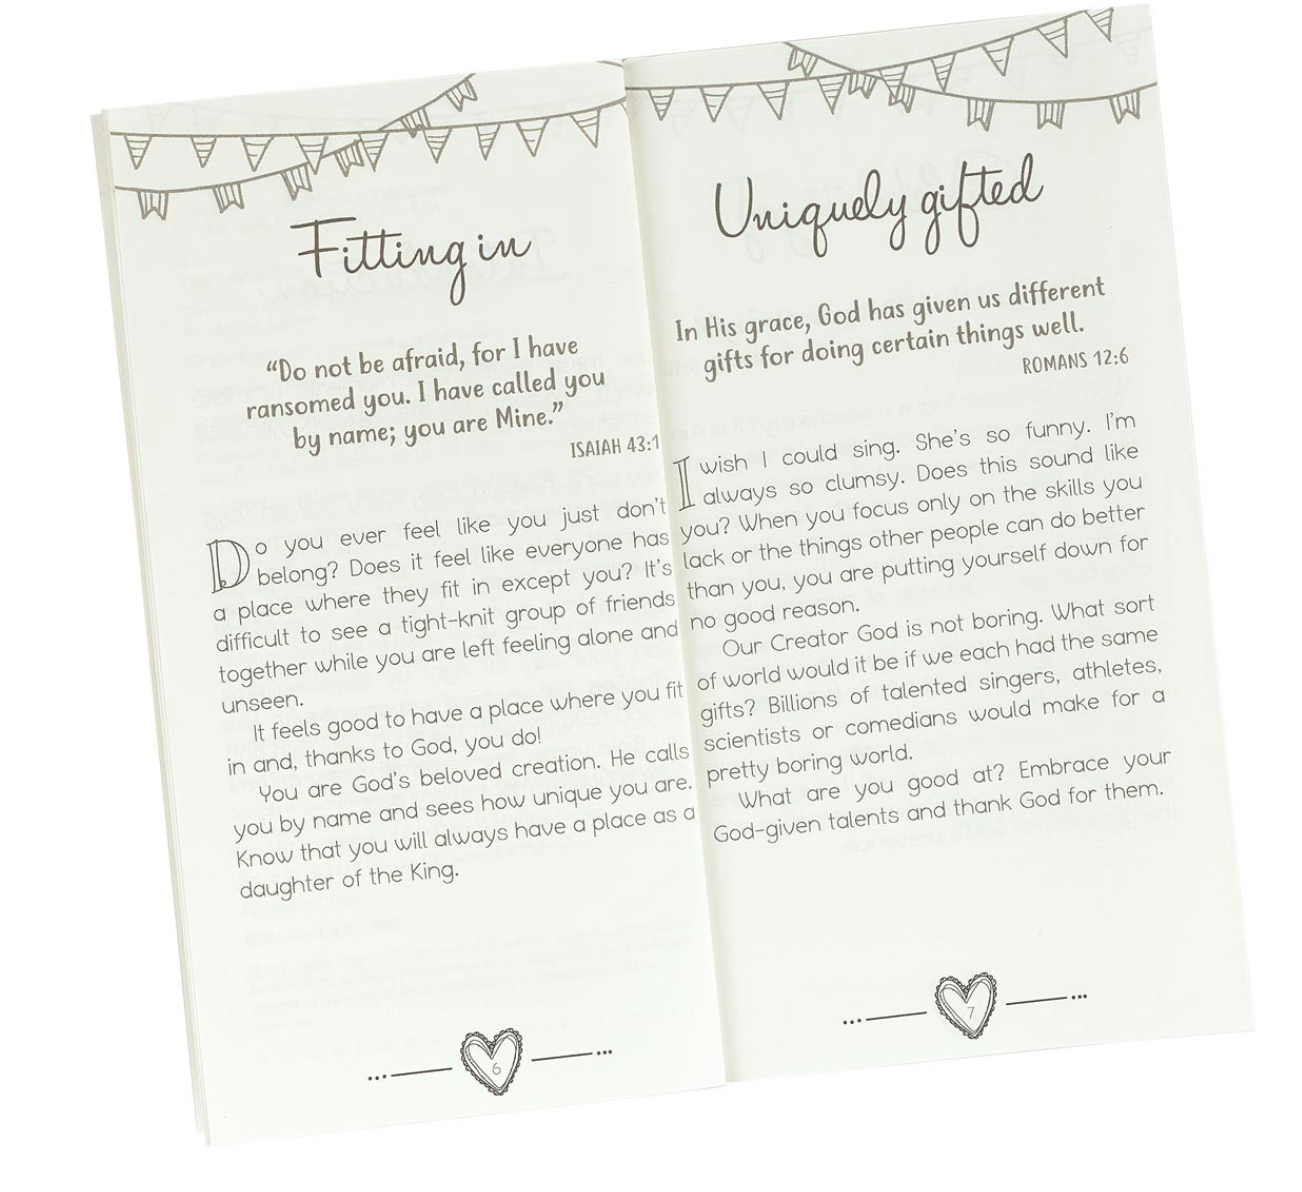 Fitting in
“Do not be afraid, for I have
ransomed you. I have called you
by name; you are Mine.”
ISAIAH 43:1
Do you ever feel like you just don't
belong? Does it feel like everyone has
a place where they fit in except you? It's
difficult to see a tight-knit group of friends
together while you are left feeling alone and
unseen.
It feels good to have a place where you fit
in and, thanks to God, you do!
You are God's beloved creation. He calls
you by name and sees how unique you are.
Know that you will always have a place as a
daughter of the King.
6
Uniquely gifted
In His grace, God has given us different
gifts for doing certain things well.
ROMANS 12:6
I wish I could sing. She's so funny. I'm
always so clumsy. Does this sound like
you? When you focus only on the skills you
lack or the things other people can do better
than you, you are putting yourself down for
no good reason.
Our Creator God is not boring. What sort
of world would it be if we each had the same
gifts? Billions of talented singers, athletes,
scientists or comedians would make for a
pretty boring world.
What are you good at? Embrace your
God-given talents and thank God for them.
7